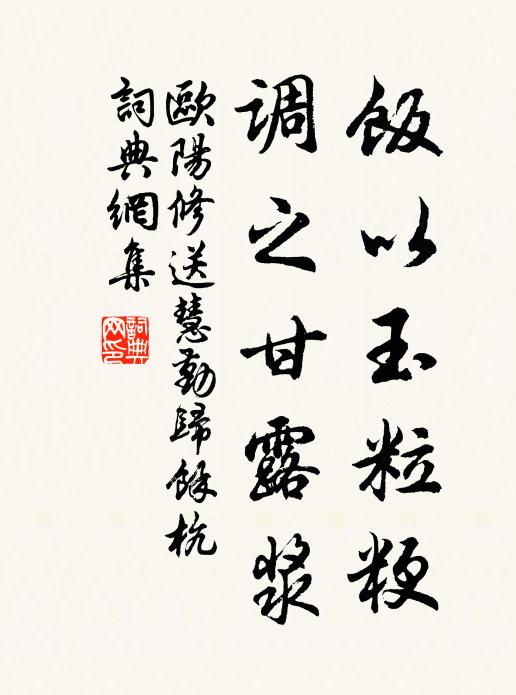 飯以玉粒粳
调之甘露漿
歐陽修送慧勤歸餘杭
詞典網集
詞典网印